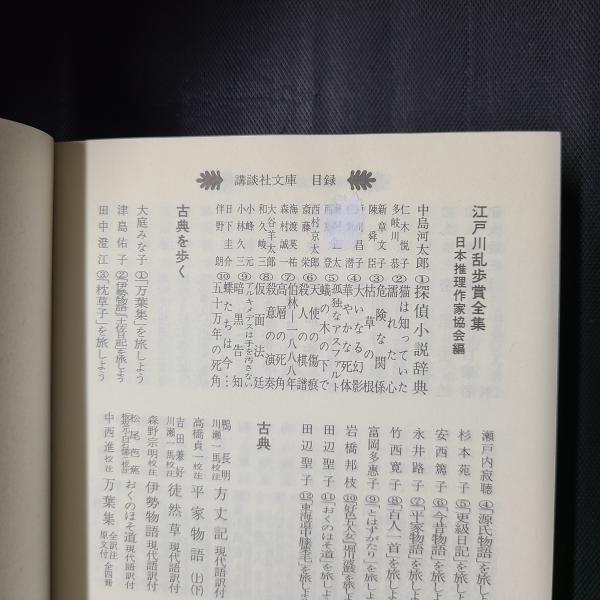 講談社文庫 目録
江戸川乱歩賞全集
日本推理作家協会編
中島河太郎 ①探偵小説辞典
仁木悦子 ②猫は知っていた
多岐川恭 濡れた心
新章文子 ③危険な関係
陳舜臣 枯草の根
川昌子 ④大いなる幻影
潜 華やかな死体
⑤孤独なアスファルト
登 蟻の木の下で
西村京太郎 ⑥天使の傷痕
斎藤栄 殺人の棋譜
海渡英祐 ⑦伯林一八八八年
森村誠一 高層の死角
大谷羊太郎 ⑧殺意の演奏
和久峻三 仮面法廷
小峰元 ⑨アルキメデスは手を汚さない
小林久三 暗黒告知
日下圭介 ⑩蝶たちは今…
伴野朗 五十万年の死角
古典を歩く
大庭みな子 ①「万葉集」を旅しよう
津島佑子 ②「伊勢物語」「土佐日記」を旅しよう
田中澄江 ③「枕草子」を旅しよう
瀬戸内寂聴 ④「源氏物語」を旅しよ
杉本苑子 ⑤「更級日記」を旅しよ
安西篤子 ⑥「今昔物語」を旅しよ
永井路子 ⑦「平家物語」を旅しよ
竹西寛子 ⑧「百人一首」を旅しよ
富岡多恵子 ⑨「とはずがたり」を旅しよ
岩橋邦枝 ⑩「好色五人女」「堀川波鼓」を旅しよ
田辺聖子 ⑪「おくのほそ道」を旅しよ
田辺聖子 ⑫「東海道中膝栗毛」を旅しよ
古典
鴨長明 方丈記 現代語訳付
川瀬一馬校注
高橋貞一校注 平家物語 (上)(下)
吉田兼好 徒然草 現代語訳付
川瀬一馬校注
森野宗明校注 伊勢物語 現代語訳付
松尾芭蕉 おくのほそ道 現代語訳付
中西進校注 万葉集 全訳注原文付 全四冊